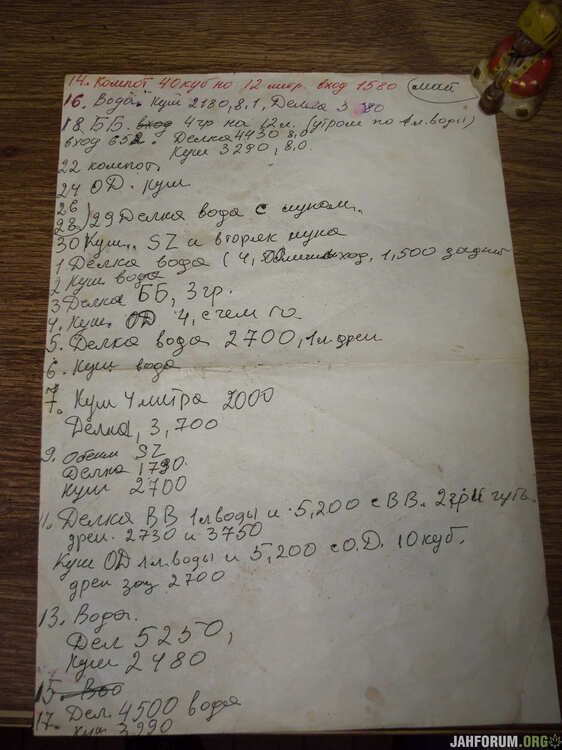 14. Компот 40 куб на 12 литр. вход 1580 (май)
16. Вода. Куш 2180, 8.1, Делка 3 80
18. ББ. вход 4 гр на 12 л. (утром по 1 л. воды)
вход 652. Делка 4430 8,0
Куш 3290, 8.0.
22 компот.
24 ОД. Куш
26
28. 29 Делка вода с луком.
30 Куш. SZ и вторяк лука
1 Делка вода (4, вход, 1,500 задний
2 Куш вода
3 Делка ББ, 3 гр.
4. Куш ОД 4, с чем то
5. Делка вода 2700, 1 л. дрен
6. Куш вода
7. Куш 4 литра 2000
Делка, 3,700
9. Обеим SZ
Делка 1790.
Куш 2700
11. Делка ВВ 1 л воды и 5,200 с ВВ. 2 гр и чуть.
дрен. 2730 и 3750
Куш ОД 1 л. воды и 5,200 с О.Д. 10 куб.
дрен 2700
13. Вода.
Дел 5250,
Куш 2480
15. Во
17. Дел. 4500 вода
Куш 3990
JAHFORUM.ORG